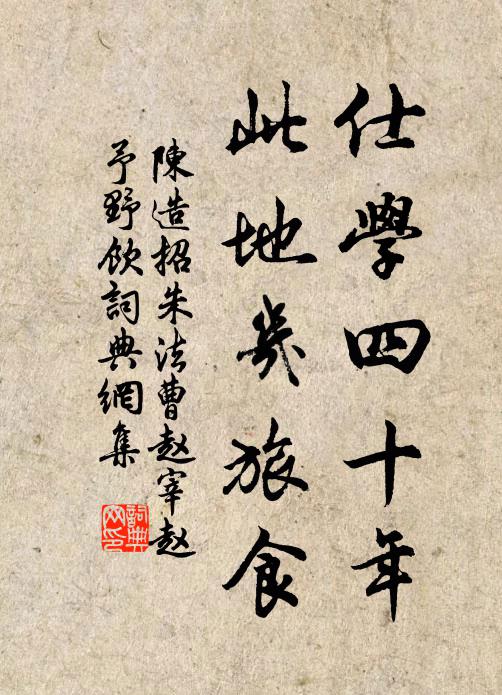 仕學四十年
此地幾旅食
陳造招朱法曹赵宰赵
予野飲詞典網集
詞典网印